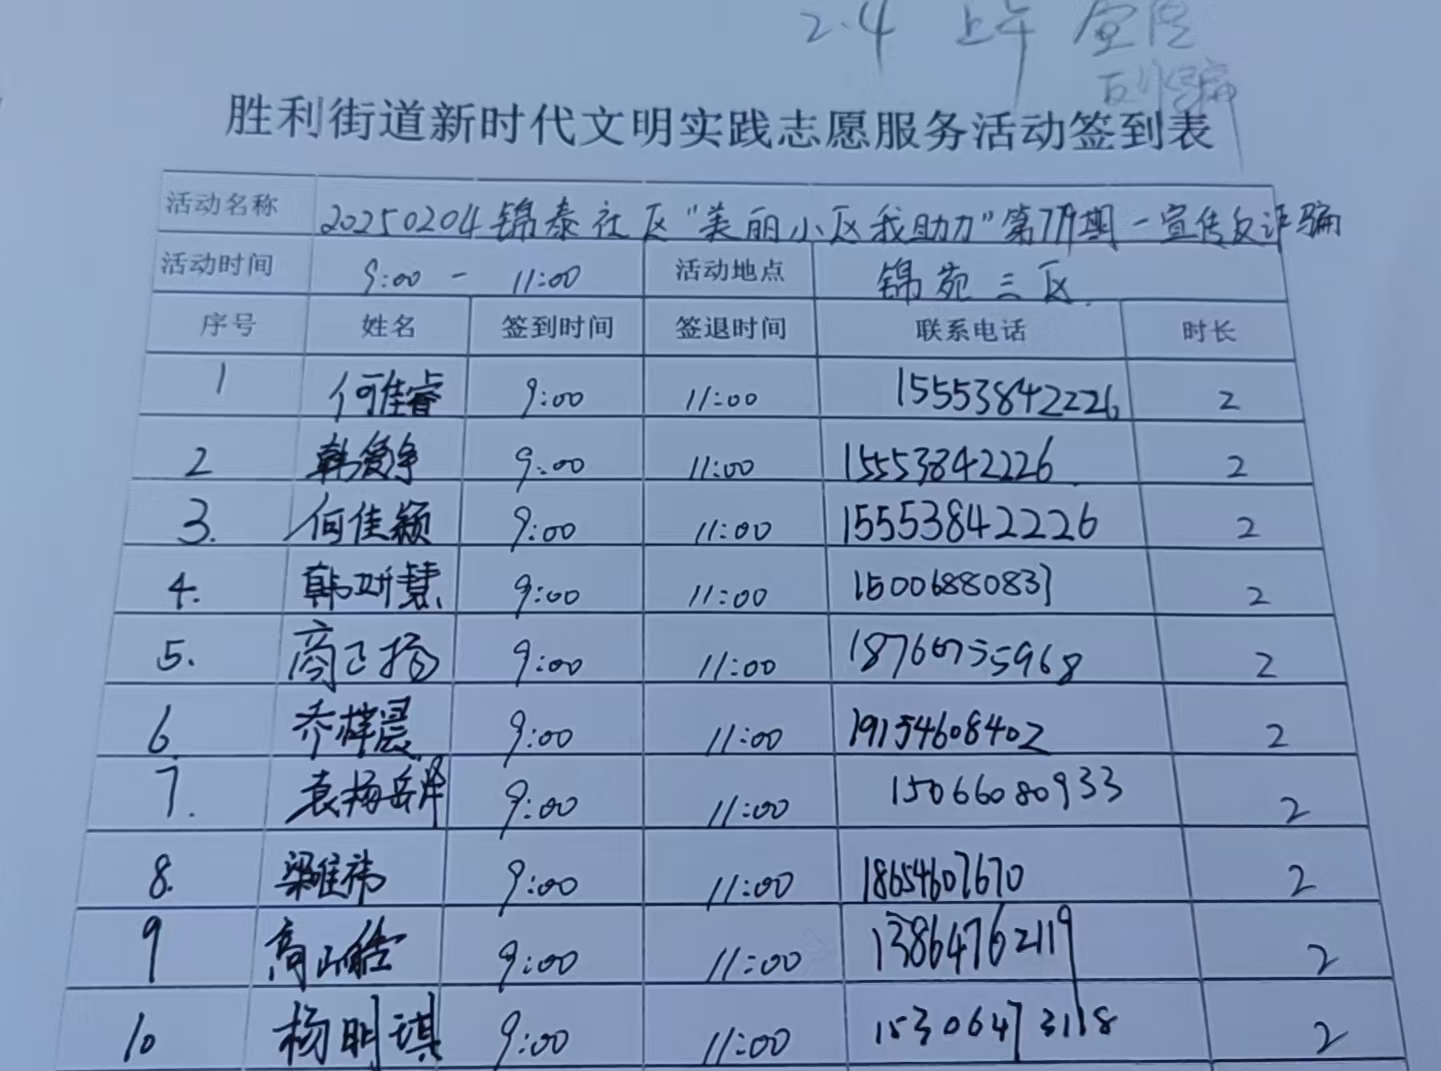 2.4 上午 宣传
反诈骗
胜利街道新时代文明实践志愿服务活动签到表
活动名称 20250204锦泰社区“美丽小区我助力”第79期-宣传反诈骗
活动时间 9:00 - 11:00 活动地点 锦苑三区
序号 姓名 签到时间 签退时间 联系电话 时长
1 何佳睿 9:00 11:00 15553842226 2
2 韩爱争 9:00 11:00 15553842226 2
3. 何佳颖 9:00 11:00 15553842226 2
4. 韩研慧 9:00 11:00 15006880831 2
5. 商正扬 9:00 11:00 18766735968 2
6 乔梓晨 9:00 11:00 19154608402 2
7. 袁杨岳洋 9:00 11:00 15066080933 2
8. 梁维祎 9:00 11:00 18654607670 2
9 高 9:00 11:00 13864762119 2
10 杨明琪 9:00 11:00 15306473118 2